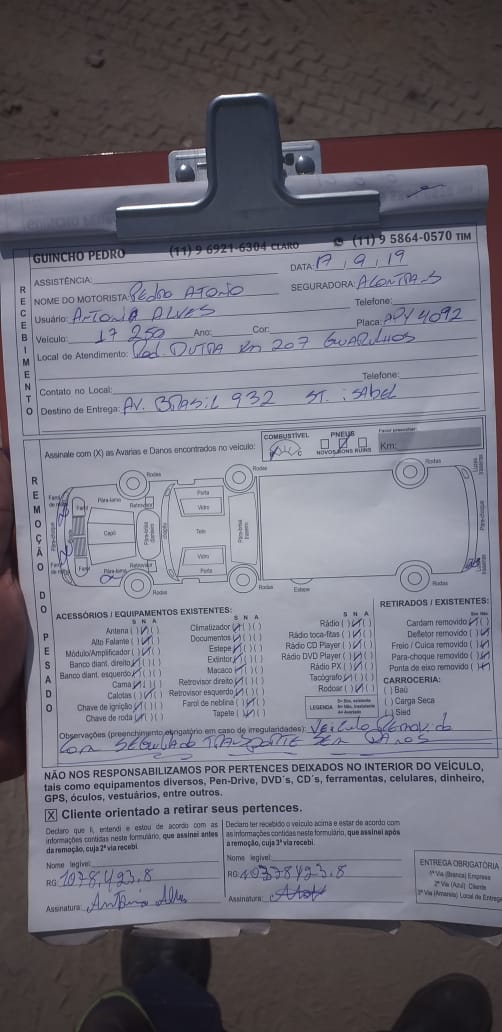 GUINCHO PEDRO (11) 9 6921-6304 CLARO (11) 9 5864-0570 TIM
RECEBIMENTO
ASSISTÊNCIA: DATA: 17, 9, 19
NOME DO MOTORISTA: Pedro Atonio SEGURADORA:
Usuário: Antonia ALVES Telefone:
Veículo: 17 250 Ano: Cor: Placa: 4092
Local de Atendimento: Rod. DUTRA Km 207 GUARULHOS
Contato no Local: Telefone:
Destino de Entrega: AV. Brasil 932 ST. iSAbel
REMOÇÃO DO PESADO
Assinale com (X) as Avarias e Danos encontrados no veículo:
COMBUSTÍVEL
PNEUS
NOVOS BONS RUINS
Km:
Rodas Rodas Rodas
Porta
Vidro
Pára-lama
Retrovisor
Farol
Capô
Teto
Pára-choque
Farol
Retrovisor
Vidro
Porta
Pára-lama
Rodas Rodas Estepe Rodas
ACESSÓRIOS / EQUIPAMENTOS EXISTENTES:
S N A
Antena ( )
Alto Falante ( )
Módulo/Amplificador ( )
Banco diant. direito
Banco diant. esquerdo
Cama
Calotas ( )
Chave de ignição
Chave de roda
S N A
Climatizador
Documentos
Estepe
Extintor
Macaco
Retrovisor direito
Retrovisor esquerdo
Farol de neblina
Tapete
S N A
Rádio
Rádio toca-fitas
Rádio CD Player
Rádio DVD Player
Rádio PX
Tacógrafo
Rodoar
LEGENDA
RETIRADOS / EXISTENTES:
Sim Não
Cardam removido
Defletor removido
Freio / Cuíca removido
Para-choque removido
Ponta de eixo removido
CARROCERIA:
( ) Baú
( ) Carga Seca
Observações (preenchimento obrigatório em caso de irregularidades): Veiculo Removido
com SEGURADO TRANSPORTE SEM DANOS
NÃO NOS RESPONSABILIZAMOS POR PERTENCES DEIXADOS NO INTERIOR DO VEÍCULO,
tais como equipamentos diversos, Pen-Drive, DVD´s, CD´s, ferramentas, celulares, dinheiro,
GPS, óculos, vestuários, entre outros.
X Cliente orientado a retirar seus pertences.
Declaro que li, entendi e estou de acordo com as
informações contidas neste formulário, que assinei antes
da remoção, cuja 2ª via recebi.
Nome legível:
RG: 1078.423.8
Assinatura: Antônia Alves
Declaro ter recebido o veículo acima e estar de acordo com
as informações contidas neste formulário, que assinei após
a remoção, cuja 3ª via recebi.
Nome legível:
RG:
Assinatura:
ENTREGA OBRIGATÓRIA
1ª Via (Branca) Empresa
2ª Via (Azul) Cliente
3ª Via (Amarela) Local de Entrega